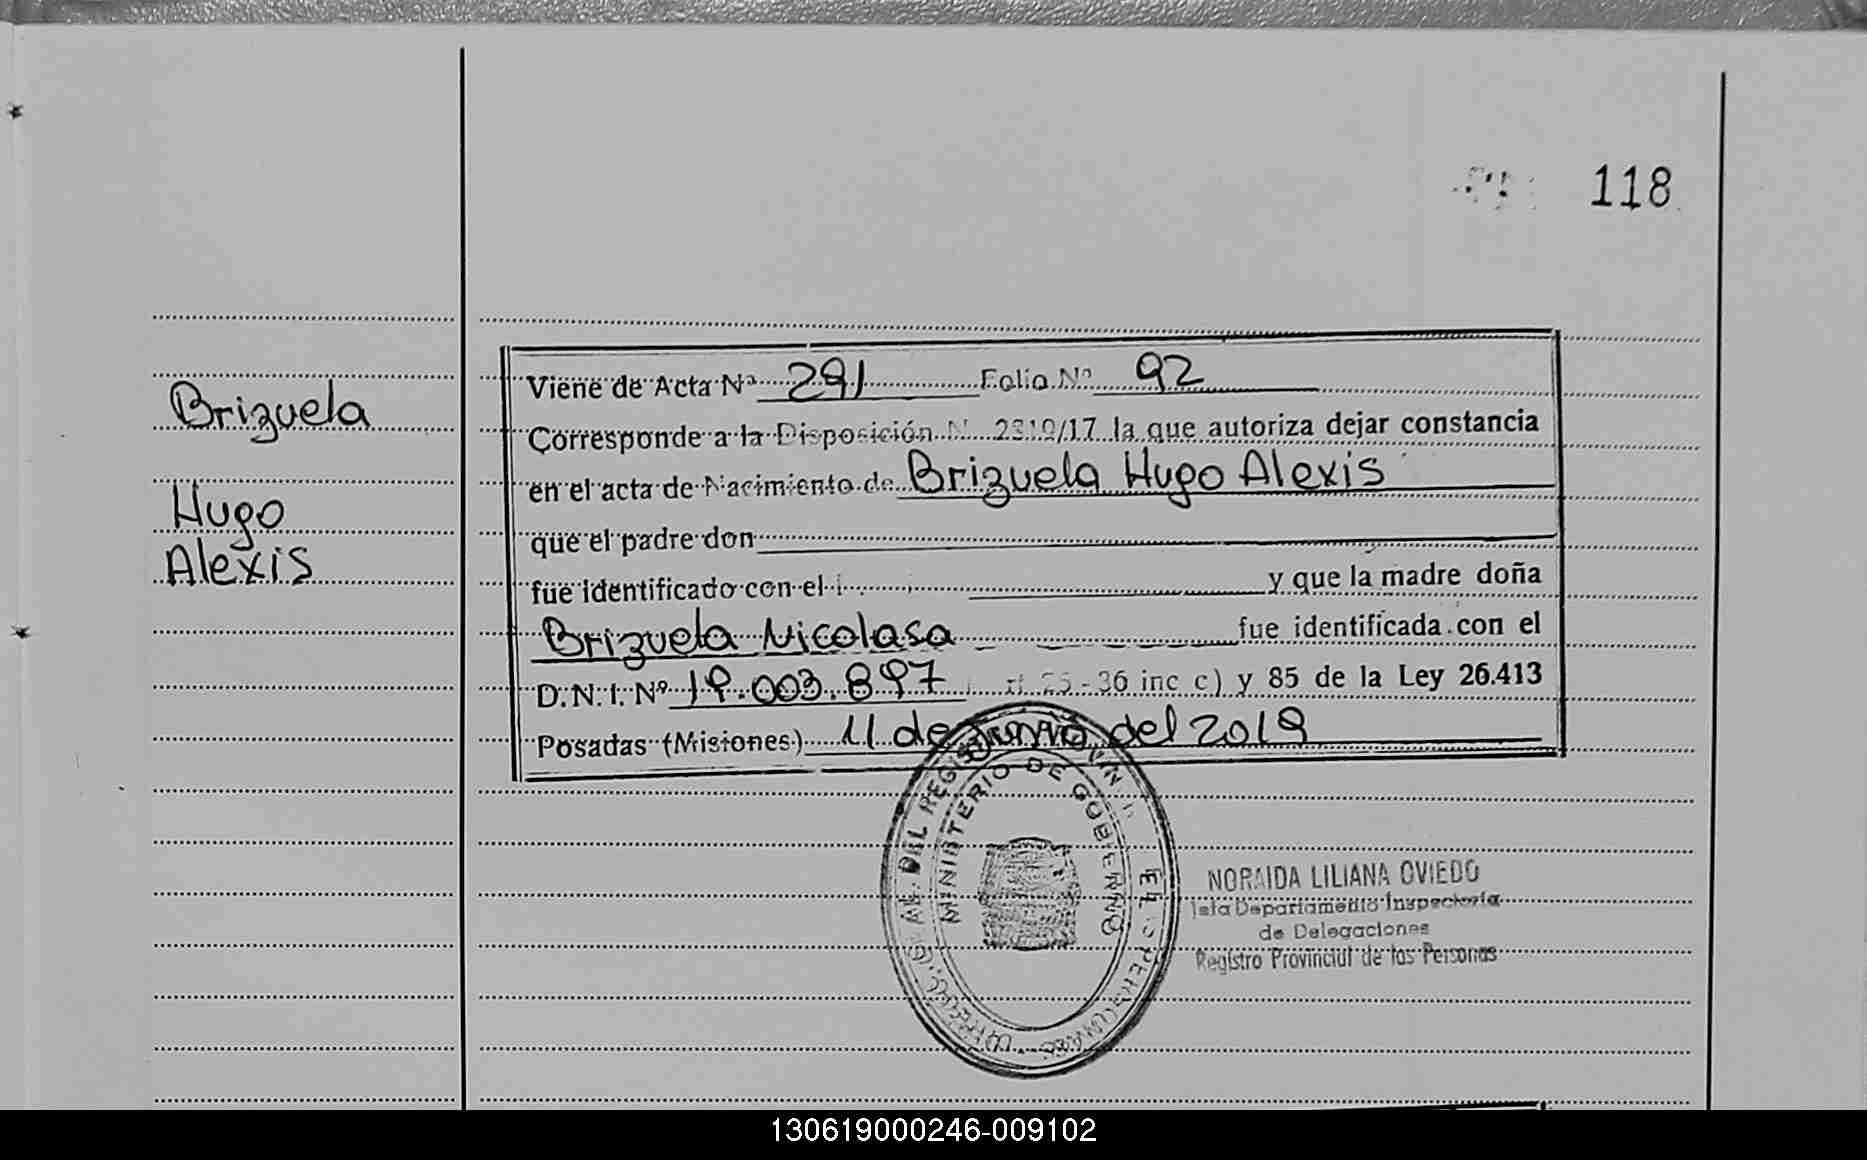 118
Brizuela
Hugo
Alexis
Viene de Acta Nº 291 Folio Nº 92
Corresponde a la Disposición N 2319/17 la que autoriza dejar constancia
en el acta de Nacimiento de Brizuela Hugo Alexis
que el padre don
fue identificado con el
y que la madre doña
Brizuela Nicolasa fue identificada con el
D.N.I. Nº 19.003.897 25 - 36 inc c) y 85 de la Ley 26.413
Posadas (Misiones) 11 de Junio del 2019
MINISTERIO DE GOBIERNO
DEL
NORAIDA LILIANA OVIEDO
Jefa Departamento Inspectoria
de Delegaciones
Registro Provincial de las Personas
130619000246-009102